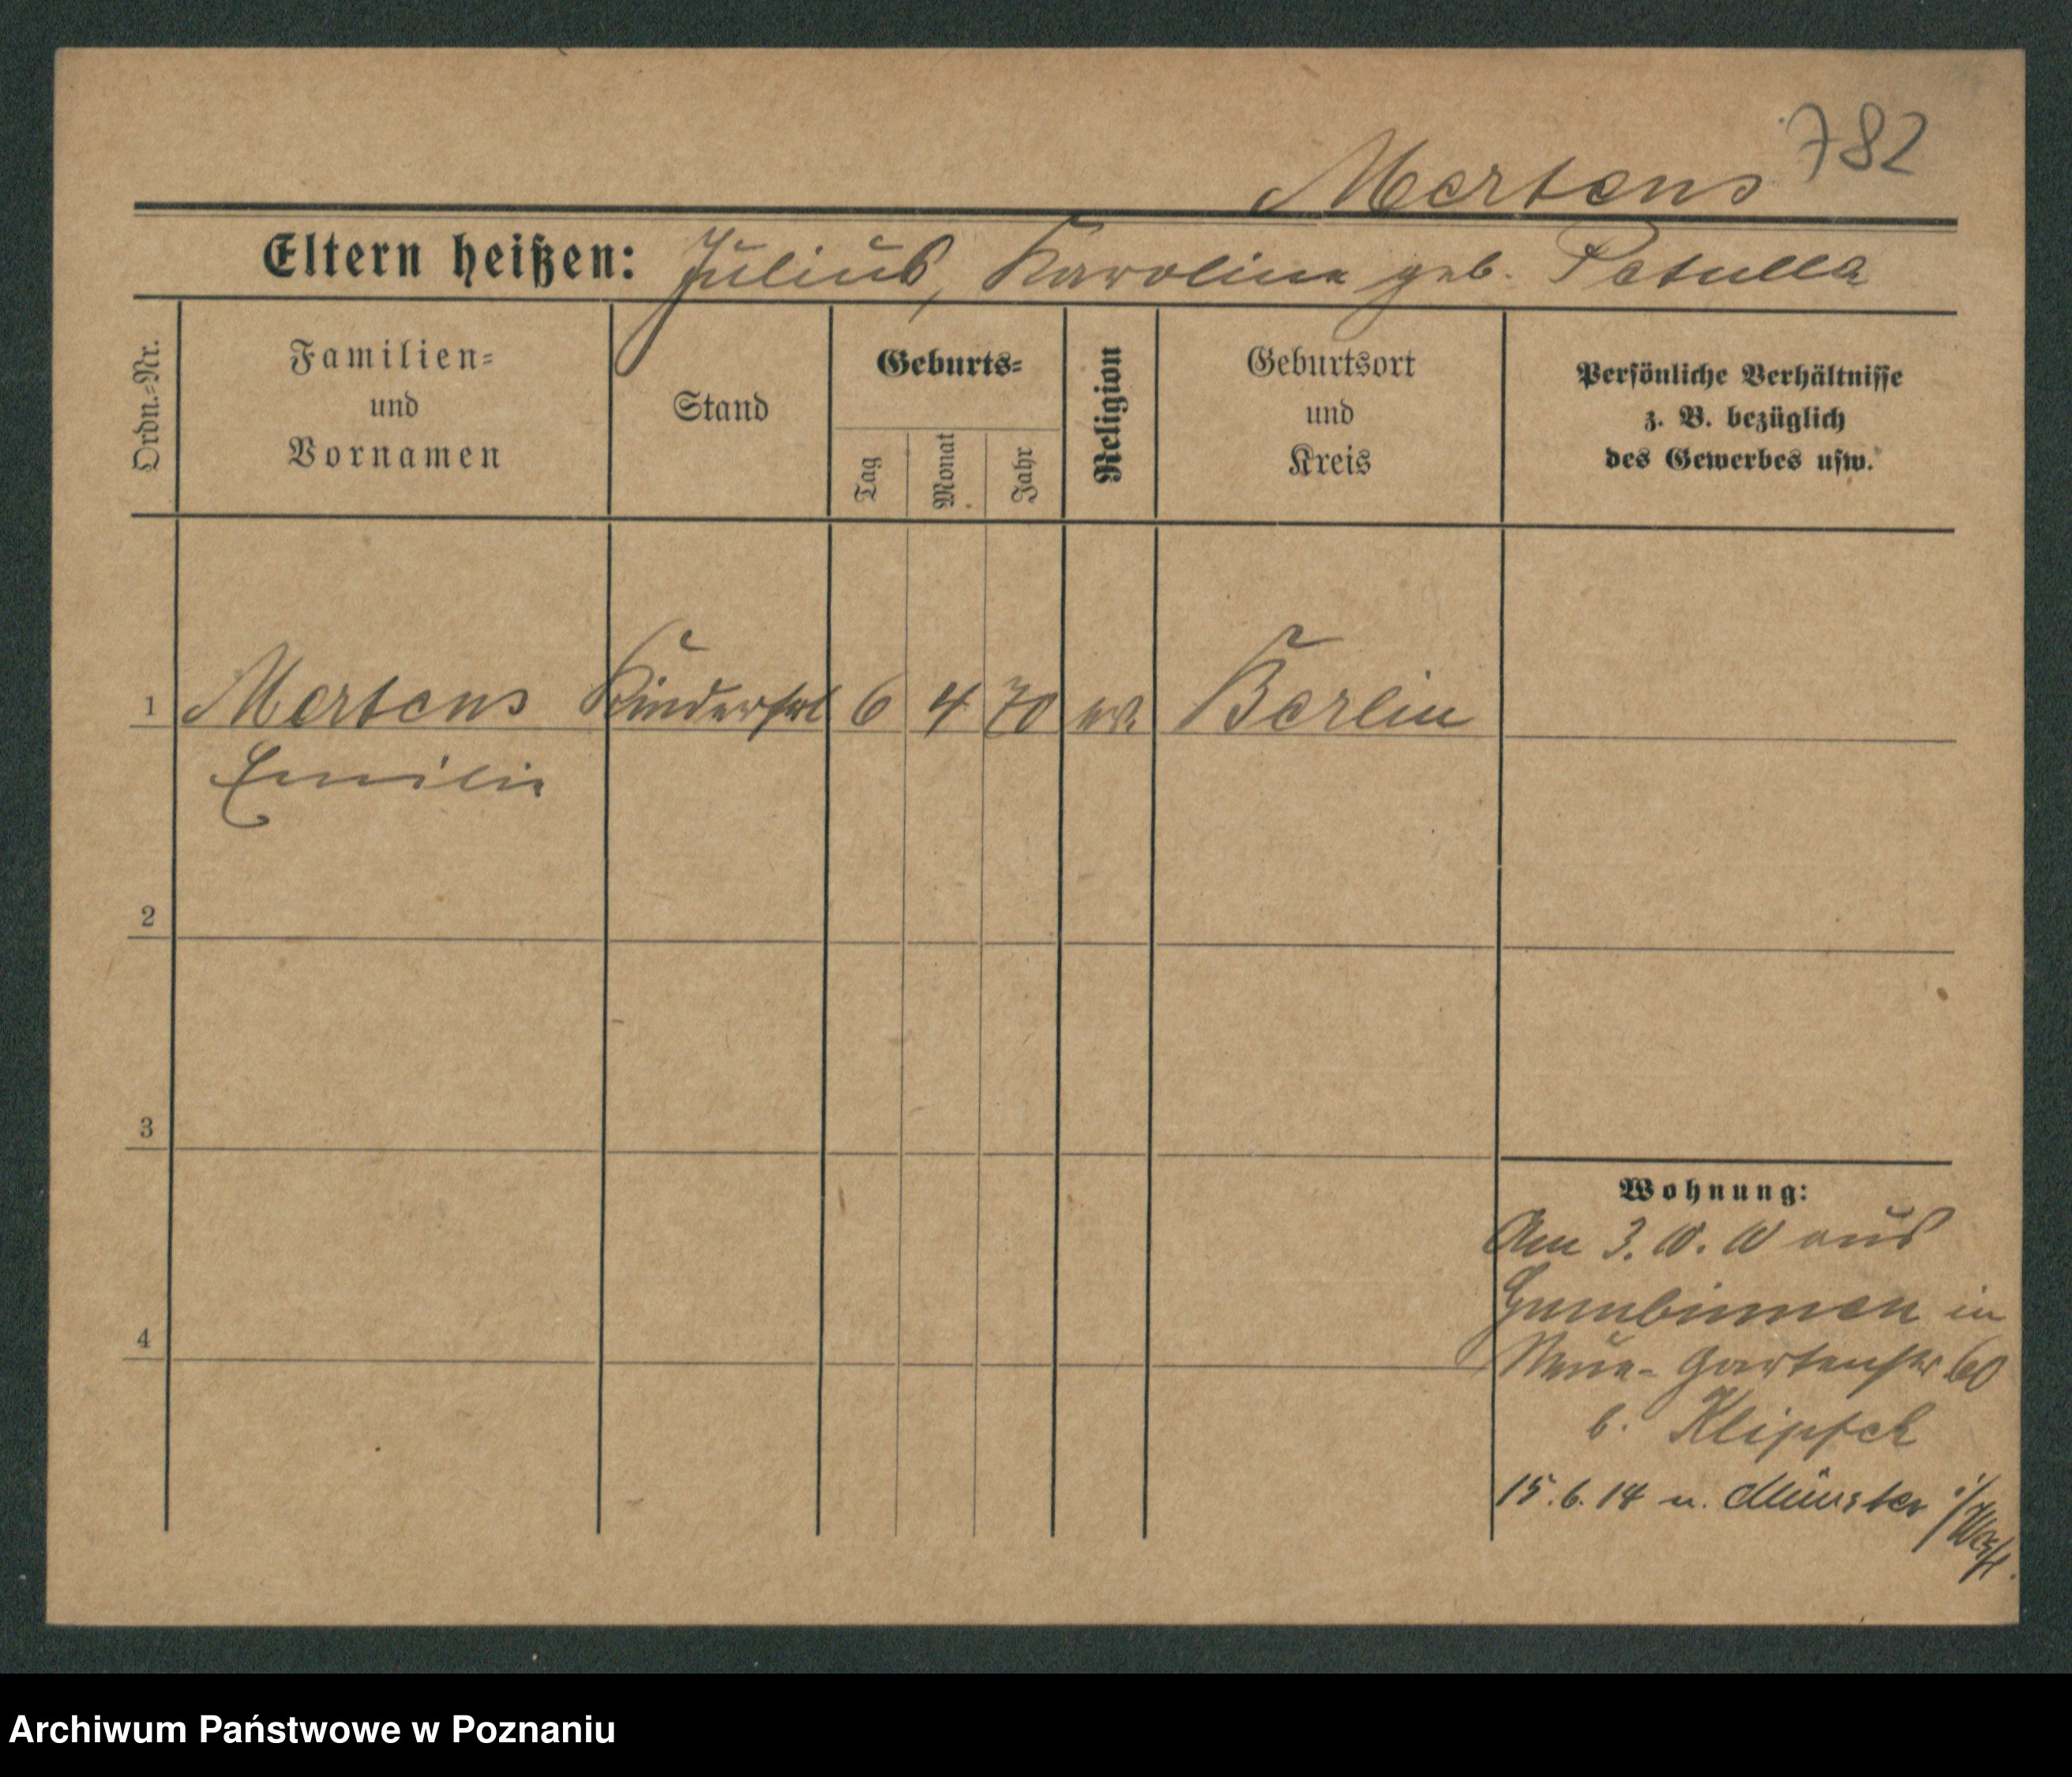 782
Mertens
Eltern heißen: Julius, Karoline geb. Petulla
Ordn.=Nr.
Familien=
und
Vornamen
Stand
Geburts=
Tag
Monat
Jahr
Religion
Geburtsort
und
Kreis
Persönliche Verhältnisse
z. B. bezüglich
des Gewerbes usw.
1 Mertens Kinderfrl 6 4 70 ev. Berlin
Emilie
2
3
4
Wohnung:
Am 3. 10. 10 aus
Gumbinnen in
Neue- Gartenstr 60
b. Klipsch
15. 6. 14 n. Münster i/Westf.
Archiwum Państwowe w Poznaniu